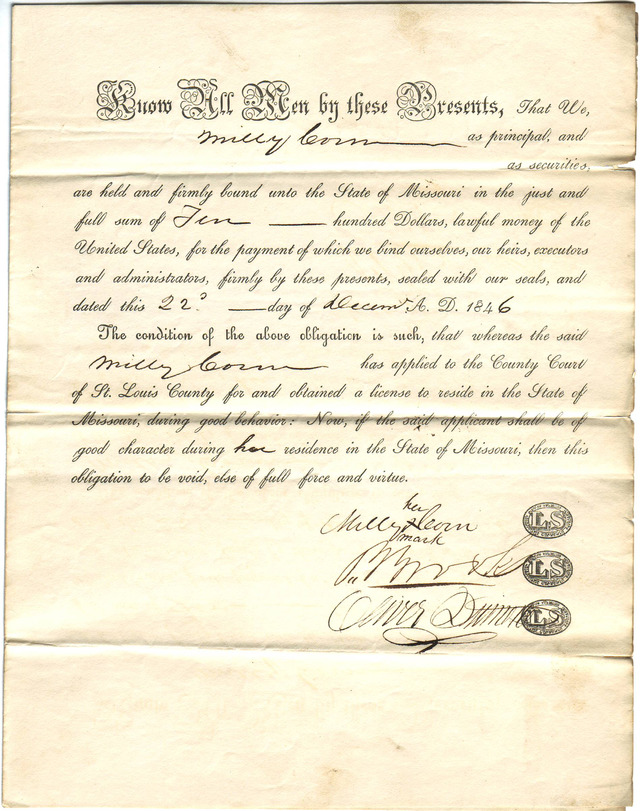 Know All Men by these Presents, That We,
Milly as principal, and
as securities,
are held and firmly bound unto the State of Missouri in the just and
full sum of Ten hundred Dollars, lawful money of the
United States, for the payment of which we bind ourselves, our heirs, executors
and administrators, firmly by these presents, sealed with our seals, and
dated this 22d day of Decemr A. D. 1846
The condition of the above obligation is such, that whereas the said
Milly has applied to the County Court
of St. Louis County for and obtained a license to reside in the State of
Missouri, during good behavior: Now, if the said applicant shall be of
good character during her residence in the State of Missouri, then this
obligation to be void, else of full force and virtue.
her
Milly x
mark
LS
LS
Oliver
LS